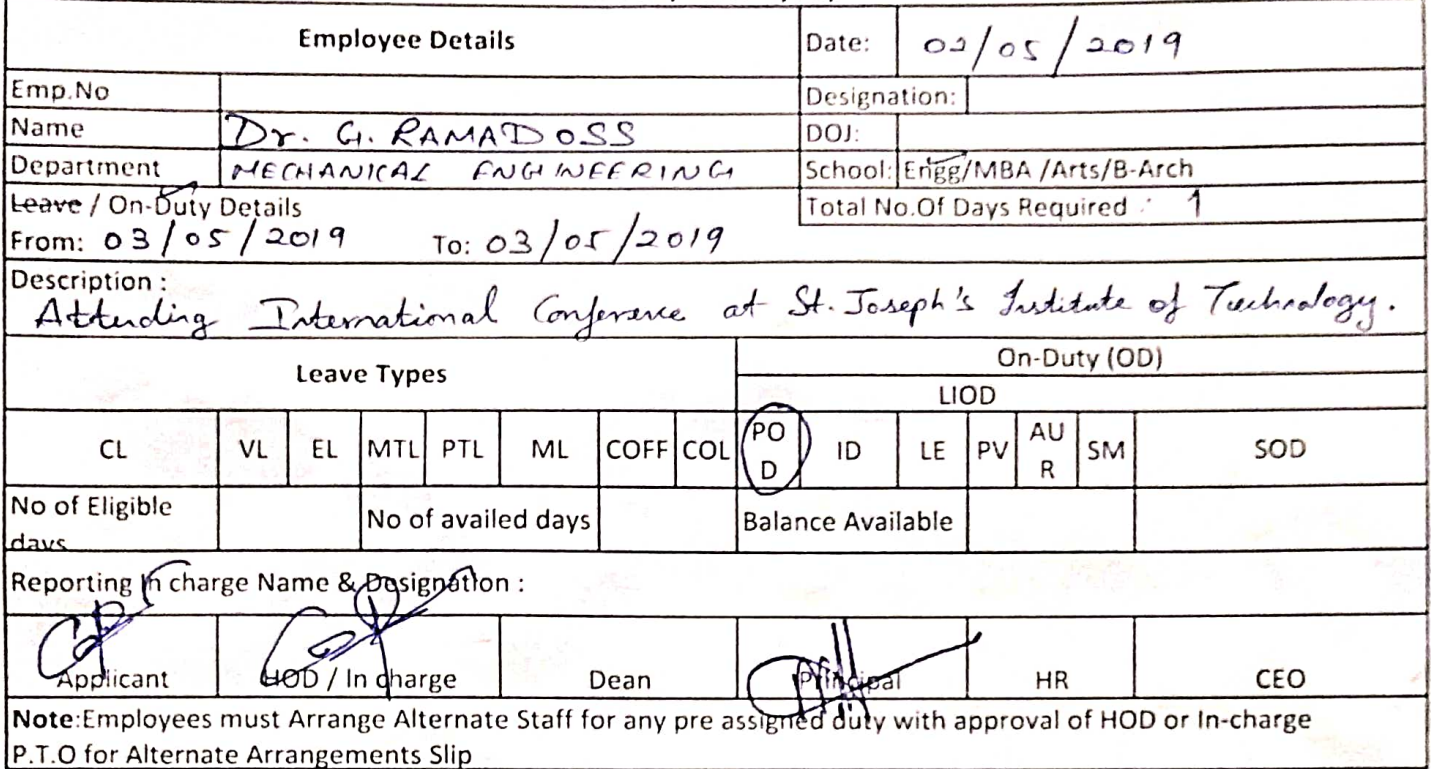 Employee Details Date: 02/05/2019
Emp.No Designation:
Name Dr. G. RAMADOSS DOJ:
Department MECHANICAL ENGINEERING School: Engg/MBA /Arts/B-Arch
Leave / On-Duty Details Total No.Of Days Required : 1
From: 03/05/2019 To: 03/05/2019
Description :
Attending International Conference at St. Joseph's Institute of Technology.
Leave Types On-Duty (OD)
LIOD
CL VL EL MTL PTL ML COFF COL POD ID LE PV AUR SM SOD
No of Eligible days No of availed days Balance Available
Reporting In charge Name & Designation :
Applicant HOD / In charge Dean Principal HR CEO
Note:Employees must Arrange Alternate Staff for any pre assigned duty with approval of HOD or In-charge
P.T.O for Alternate Arrangements Slip